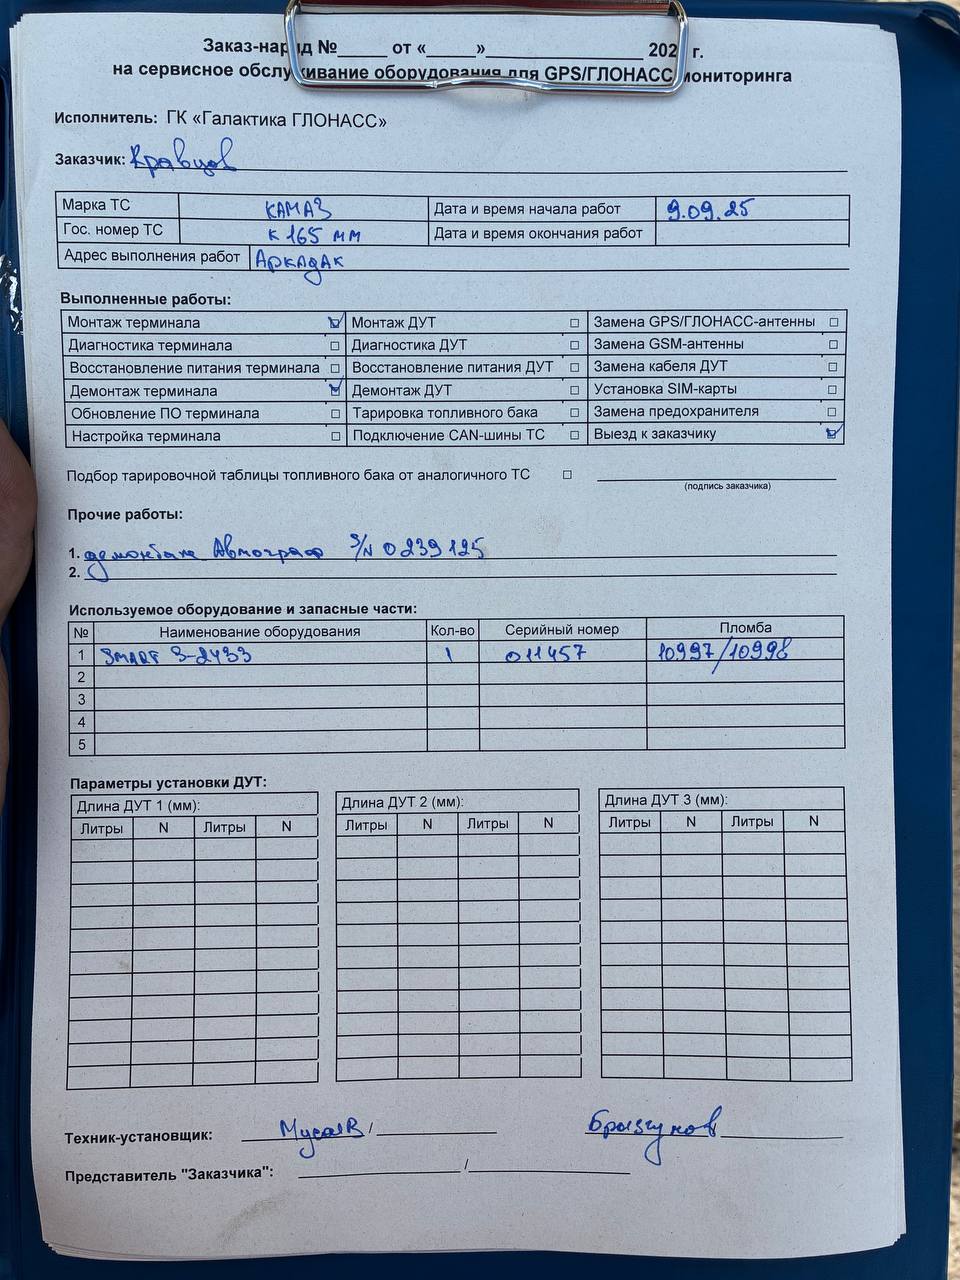 Заказ-наряд №_____ от «_____»________________ 202 г.
на сервисное обслуживание оборудования для GPS/ГЛОНАСС мониторинга
Исполнитель: ГК «Галактика ГЛОНАСС»
Заказчик: Кравцов
Марка ТС КАМАЗ Дата и время начала работ 9.09.25
Гос. номер ТС К 165 мм Дата и время окончания работ
Адрес выполнения работ Аркадак
Выполненные работы:
Монтаж терминала ☑ Монтаж ДУТ □ Замена GPS/ГЛОНАСС-антенны □
Диагностика терминала □ Диагностика ДУТ □ Замена GSM-антенны □
Восстановление питания терминала □ Восстановление питания ДУТ □ Замена кабеля ДУТ □
Демонтаж терминала ☑ Демонтаж ДУТ □ Установка SIM-карты □
Обновление ПО терминала □ Тарировка топливного бака □ Замена предохранителя □
Настройка терминала □ Подключение CAN-шины ТС □ Выезд к заказчику ☑
Подбор тарировочной таблицы топливного бака от аналогичного ТС □
(подпись заказчика)
Прочие работы:
1. демонтаж Автограф S/N 0239125
2.
Используемое оборудование и запасные части:
№ Наименование оборудования Кол-во Серийный номер Пломба
1 SMART S-2433 1 011457 10997/10998
2
3
4
5
Параметры установки ДУТ:
Длина ДУТ 1 (мм): Длина ДУТ 2 (мм): Длина ДУТ 3 (мм):
Литры N Литры N Литры N Литры N Литры N Литры N
Техник-установщик: Мусаев / Брызгунов
Представитель "Заказчика": /